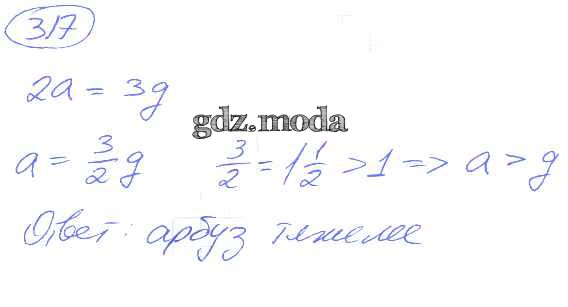 317
2a = 3g
gdz.moda
a = 3/2 g 3/2 = 1 1/2 > 1 => a > g
Ответ: арбуз тяжелее